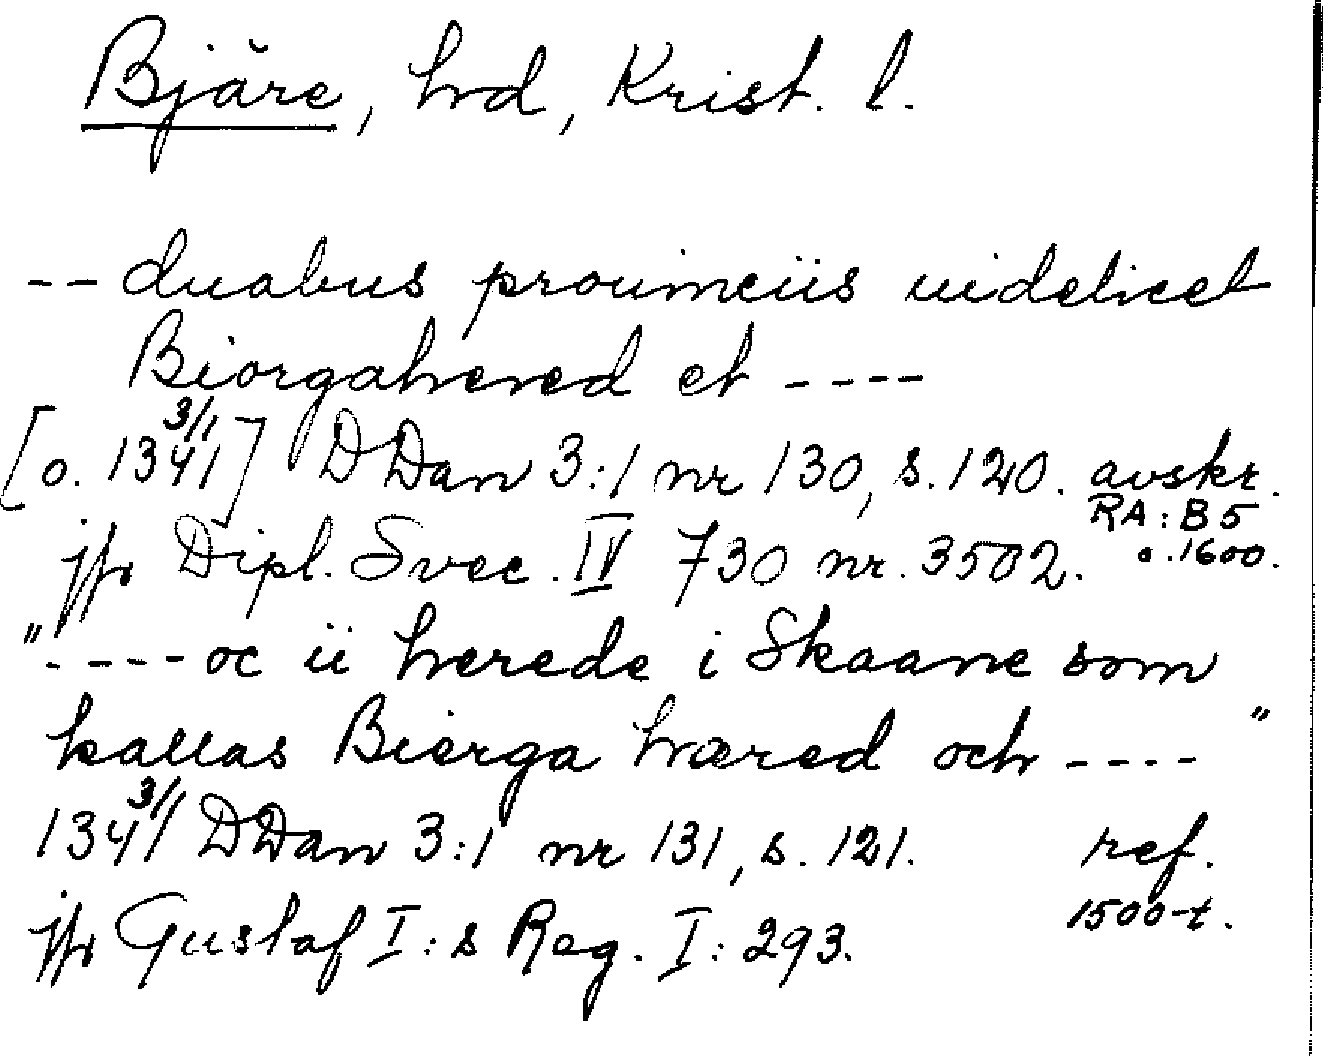 Bjäre, hrd, Krist. l.
-- duabus prouinciis uidelicet
Biorgahered et ----
[o. 1341 3/1] DDan 3:1 nr 130, s. 120. avskr.
RA: B5
jfr Dipl. Svec. IV 730 nr. 3502. o. 1600.
"---- oc ii herede i Skaane som
kallas Bierga hæred och ----"
1341 3/1 DDan 3:1 nr 131, s. 121. ref.
jfr Gustaf I:s Reg. I: 293. 1500-t.